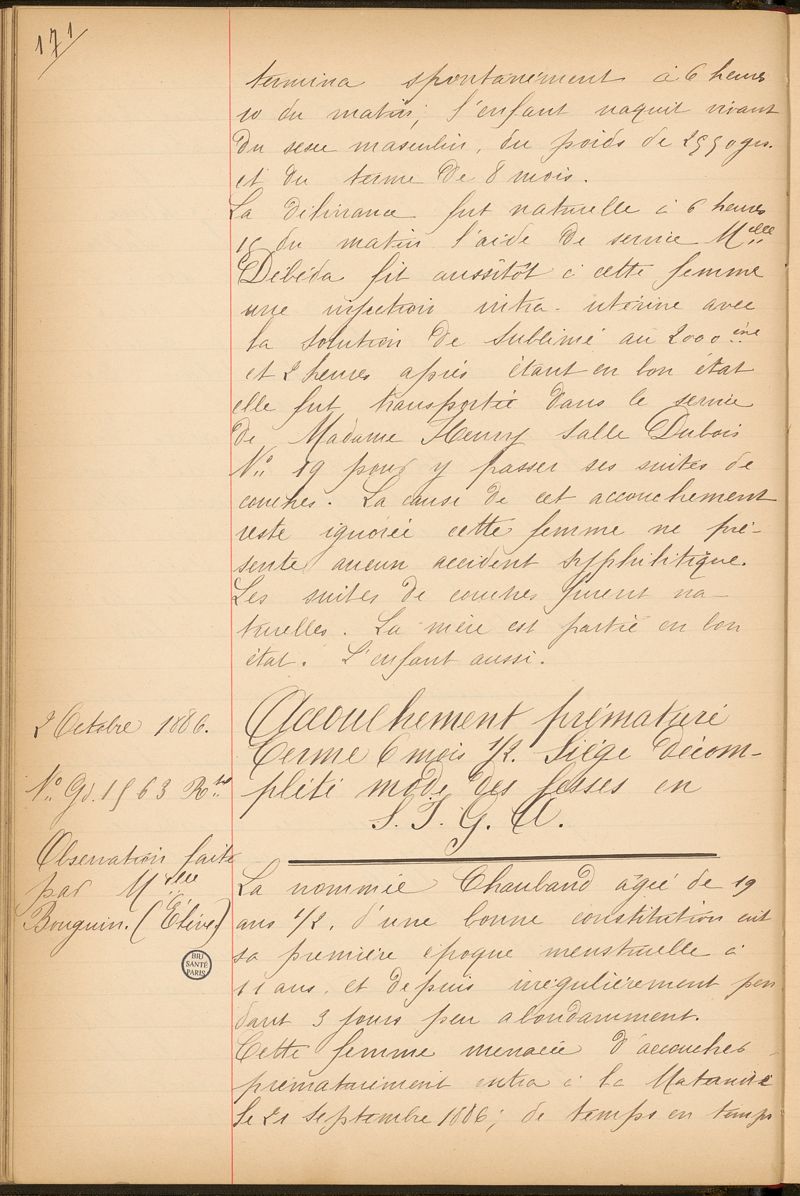 171
termina spontanément à 6 heures
10 du matin, l'enfant naquit vivant
du sexe masculin, du poids de 2550 grs.
et du terme de 8 mois.
La délivrance fut naturelle à 6 heures
15 du matin l'aide de service Melle
Débéda fit aussitôt à cette femme
une injection intra-utérine avec
la solution de sublimé au 2000ème
et 2 heures après étant en bon état
elle fut transportée dans le service
de Madame Henry salle Dubois
No 19 pour y passer ses suites de
couches. La cause de cet accouchement
reste ignorée cette femme ne pré-
sente aucun accident syphilitique.
Les suites de couches furent na-
turelles. La mère est partie en bon
état. L'enfant aussi.
2 Octobre 1886.
No Gd. 1563
Observation faite
par Melle
Bouguin. (Élève)
Accouchement prématuré
Terme 6 mois 1/2. Siége décom-
plété mode des fesses en
S. I. G. A.
La nommée Chauband âgée de 19
ans 1/2, d'une bonne constitution eut
sa première époque menstruelle à
11 ans, et depuis irrégulièrement pen
dant 3 jours peu abondamment.
Cette femme menacée d'accoucher
prématurément entra à la Maternité
le 21 septembre 1886; de temps en temps
BIU
SANTÉ
PARIS